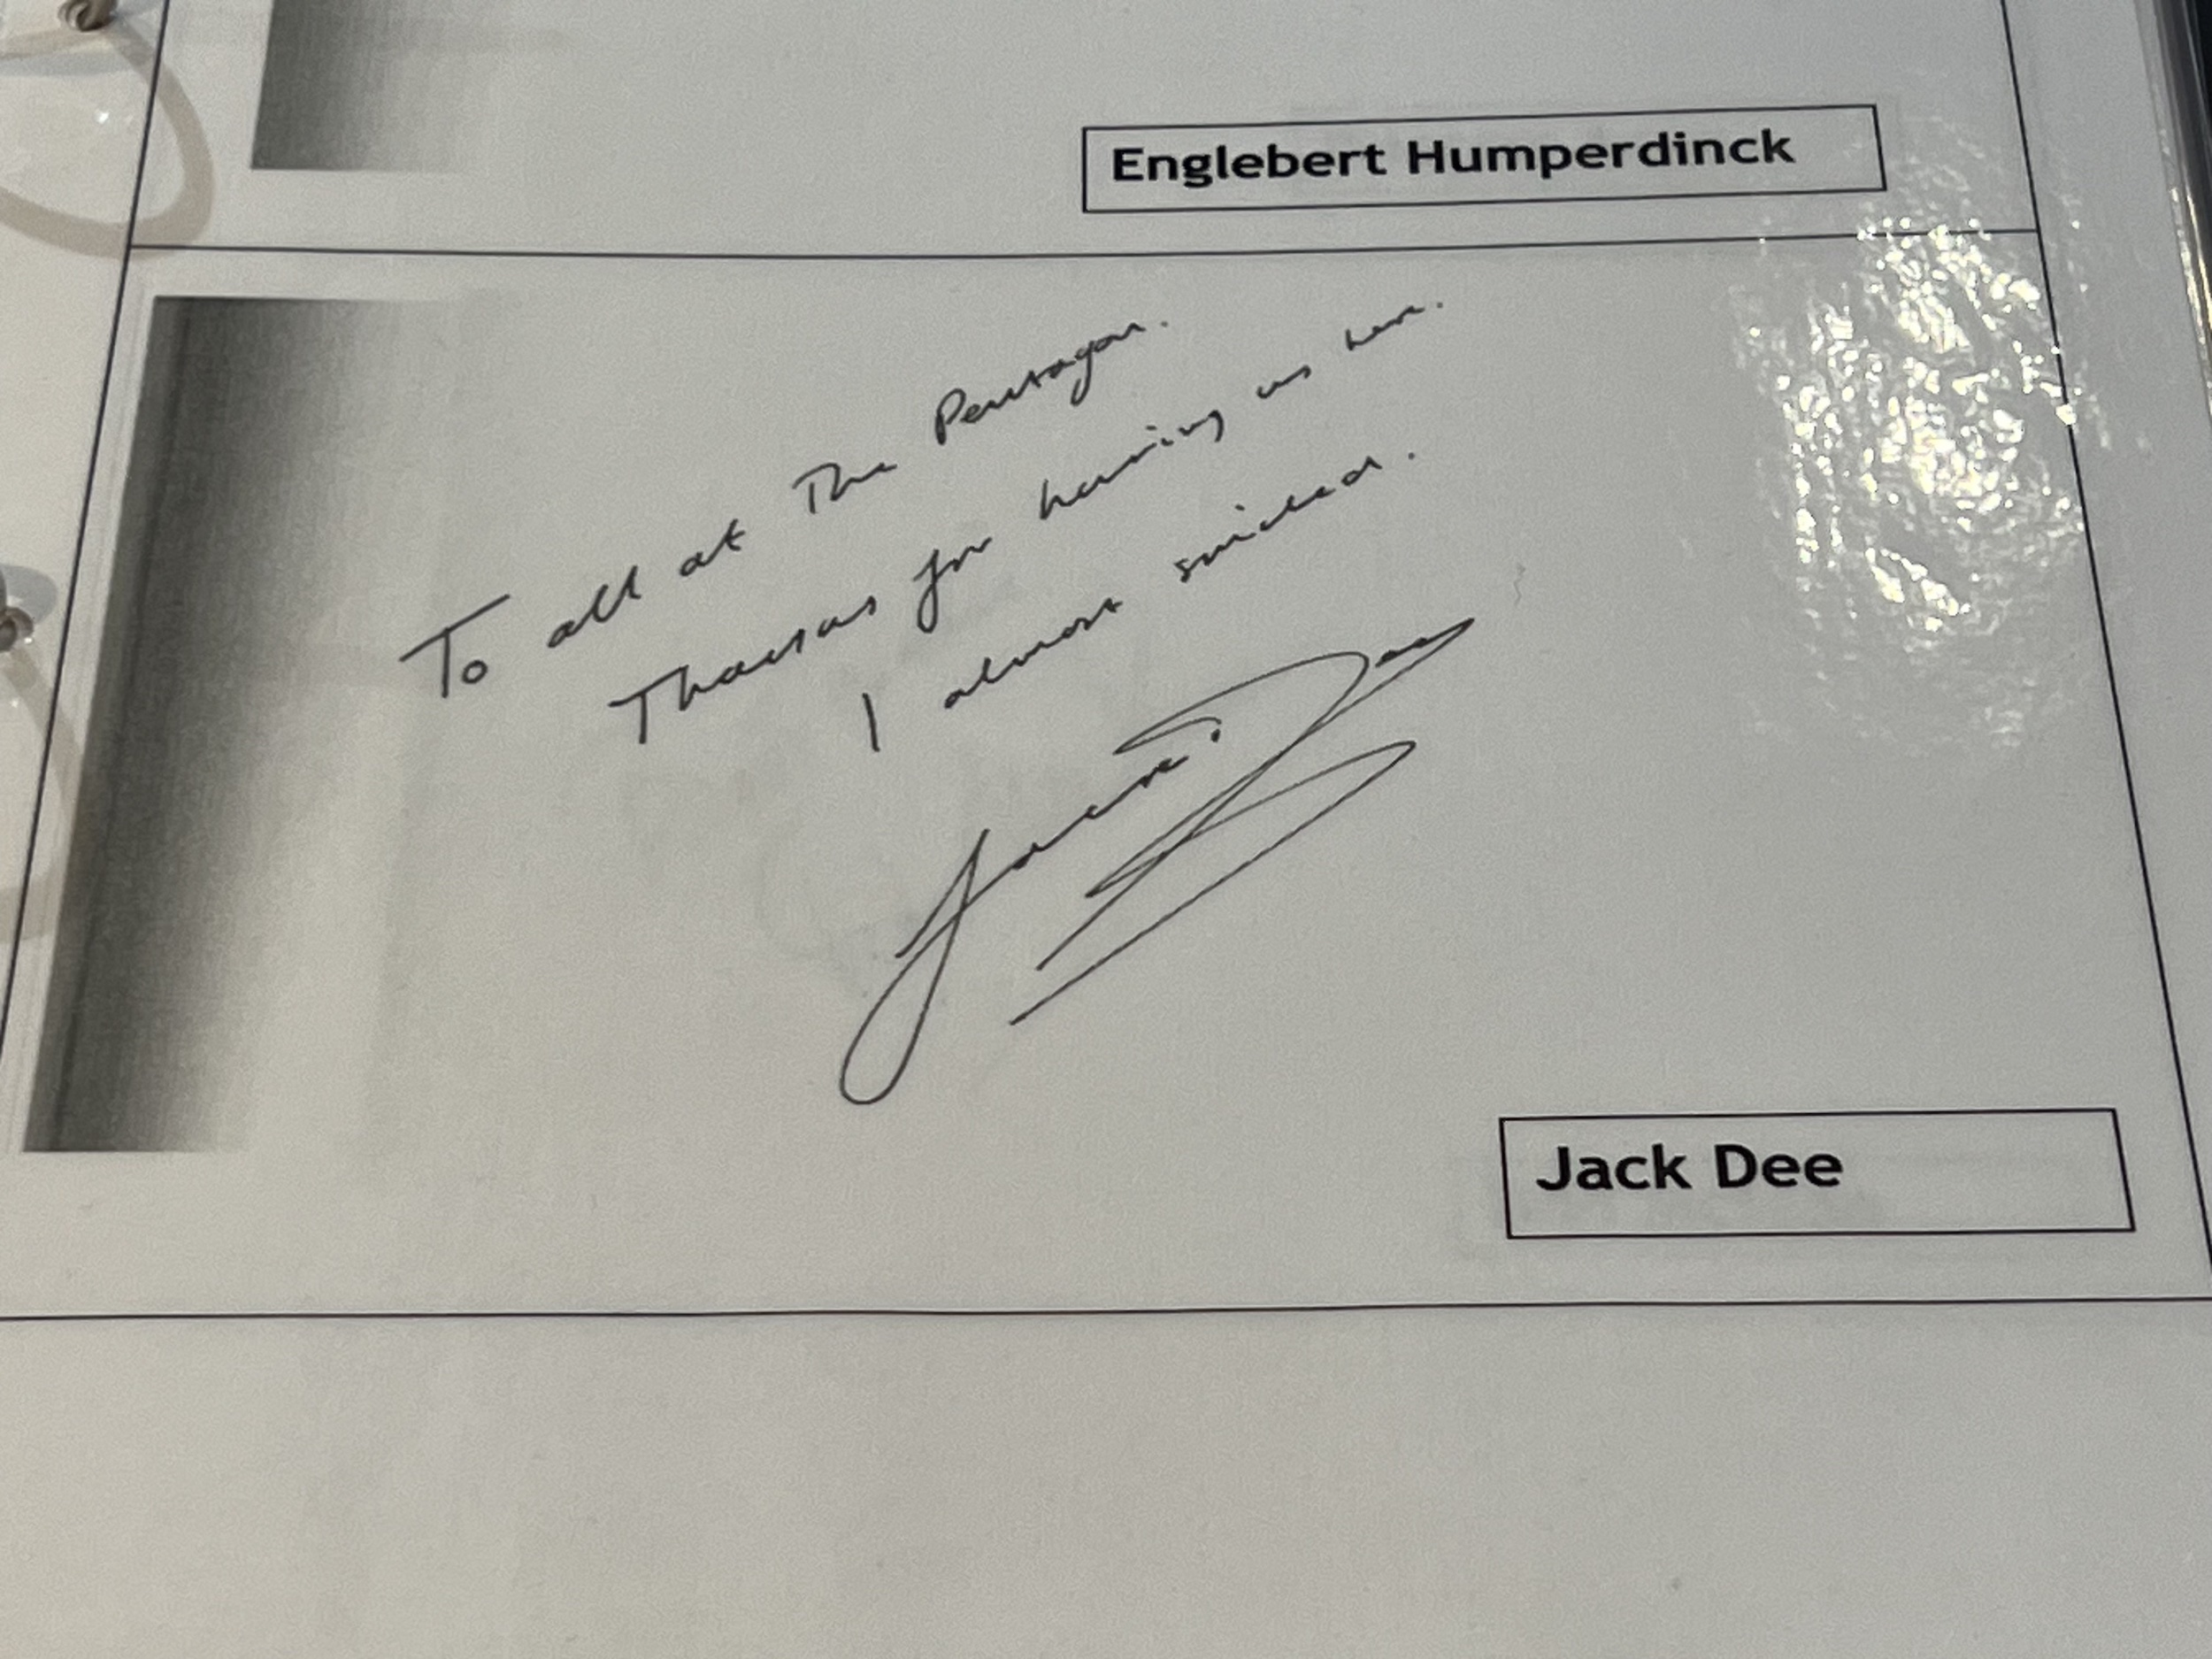 Englebert Humperdinck
To all at The Pentagon.
Thanks for having us here.
I almost smiled.
Jack Dee